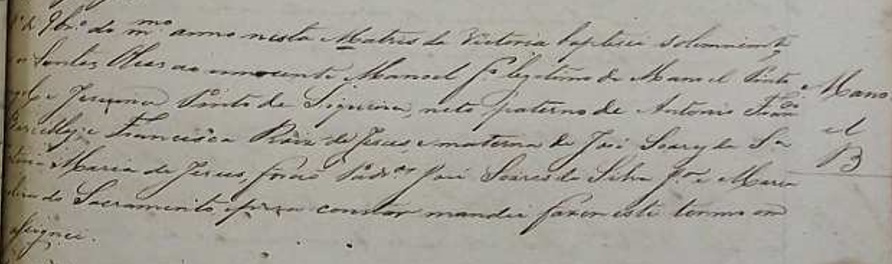 de 9br.º do m.mo anno nesta Matris da Victoria baptisei solemnemente
Santos Oleos ao innocente Manoel f.º legitimo de Manoel Pinto
e Pinto de Siqueira, neto paterno de Antonio
e Francisca Roiz de Jesus e materna de José Soares da
Maria de Jesus, forão Padr.os José Soares da Silva e Maria
do Sacramento e p.ª constar mandei fazer este termo em
assignei.
Mano
el
B